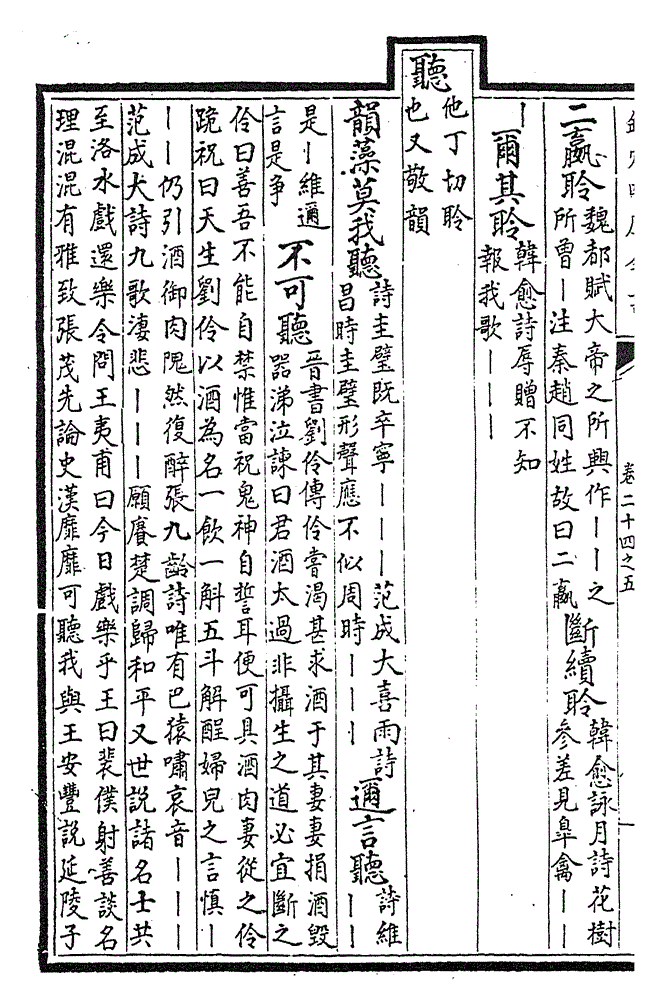 卷二十四之五
二嬴聆
魏都賦大帝之所興作丨丨之
所曾丨注秦趙同姓故曰二嬴
斷續聆
韓愈詠月詩花樹
參差見皐禽丨丨
丨
爾其聆
韓愈詩辱贈不知
報我歌丨丨丨
聽
他丁切聆
也又敬韻
韻藻莫我聽
詩圭璧既卒寧丨丨丨范成大喜雨詩
昌時圭璧形聲應不似周時丨丨丨
邇言聽
詩維
丨丨
是丨維邇
言是争
不可聽
晉書劉伶傳伶嘗渴甚求酒于其妻妻捐酒毀
器涕泣諫曰君酒太過非攝生之道必宜斷之
伶曰善吾不能自禁惟當祝鬼神自誓耳便可具酒肉妻從之伶
跪祝曰天生劉伶以酒為名一飲一斛五斗解酲婦兒之言慎丨
丨丨仍引酒御肉隗然復醉張九齡詩唯有巴猿嘯哀音丨丨丨
范成大詩九歌淒悲丨丨丨願賡楚調歸和平又世說諸名士共
至洛水戲還樂令問王夷甫曰今日戲樂乎王曰裴僕射善談名
理混混有雅致張茂先論史漢靡靡可聽我與王安豐說延陵子